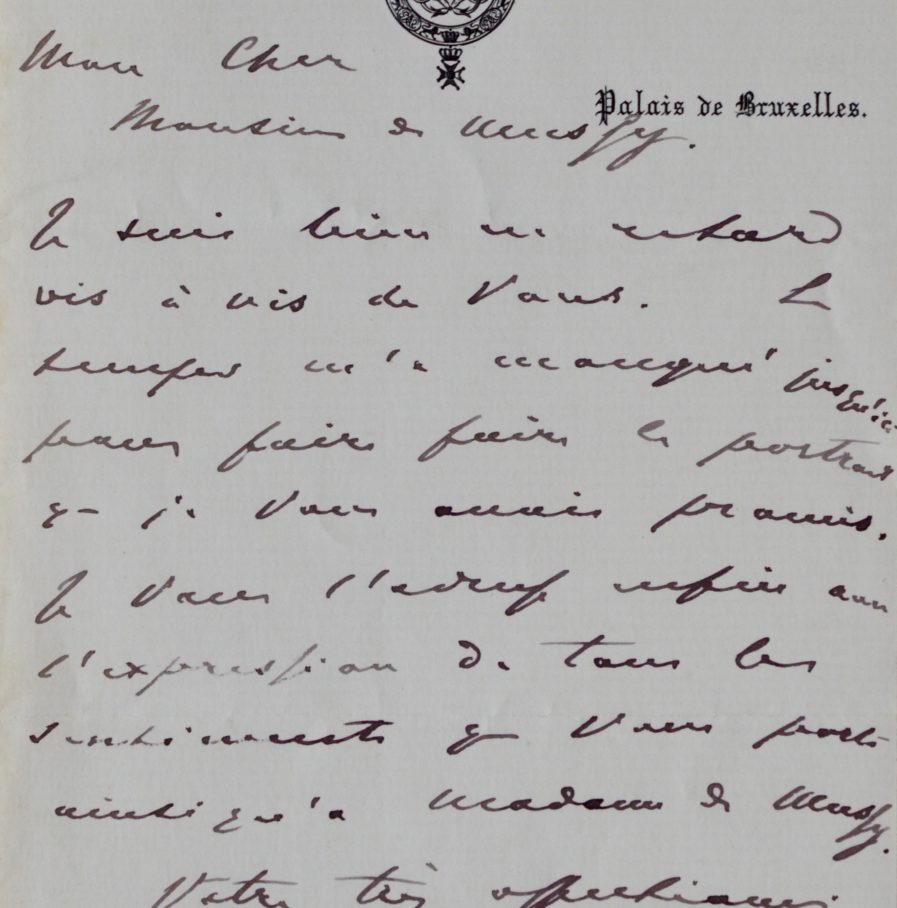 Palais de Bruxelles.
Mon Cher
Monsieur de Mussy.
Je suis bien en retard
vis à vis de Vous. Le
temps m'a manqué jusqu'ici
pour faire faire le portrait
q- je Vous avais promis.
Je Vous l'adresse enfin avec
l'expression de tous les
sentiments q Vous porte
ainsi qu'à Madame de Mussy.
Votre très affectionné